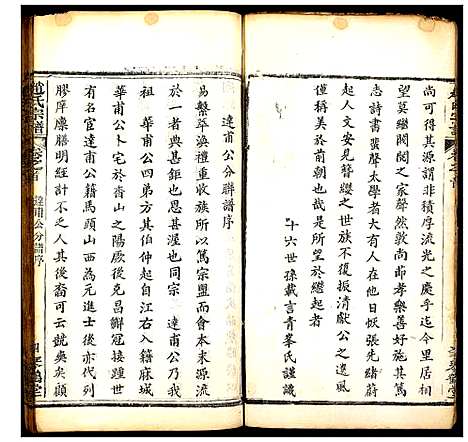 尚可得其源謂非積厚流光之慶乎迄今里居相
望莫繼閥閱之家學然尚節孝樂善好施其篤
志詩書蜚聲太學者大有人在他日恢張先緒蔚
起人文安見簪纓之世族不復振清獻公之遺風
美於前朝也哉是所望於繼起者
十六世孫載言青峯氏謹識
達甫公分聯譜序
易繫萃渙禮重收族所以篤宗盟而會本來源流
於一者意至厚也恩甚渥也同宗 達甫公乃我
祖 華甫公四弟方其伯仲起自江右入籍麻城
華甫公卜宅於沓山之陽厥後克昌觧冠接踵世
有名宦達甫公籍馬頭山西為元進士後亦代列
膠庠廩膳明經計不乏人其後裔可云虩矣矣顧
趙氏宗譜
卷之首
達甫公分譜序
四
琴鶴堂